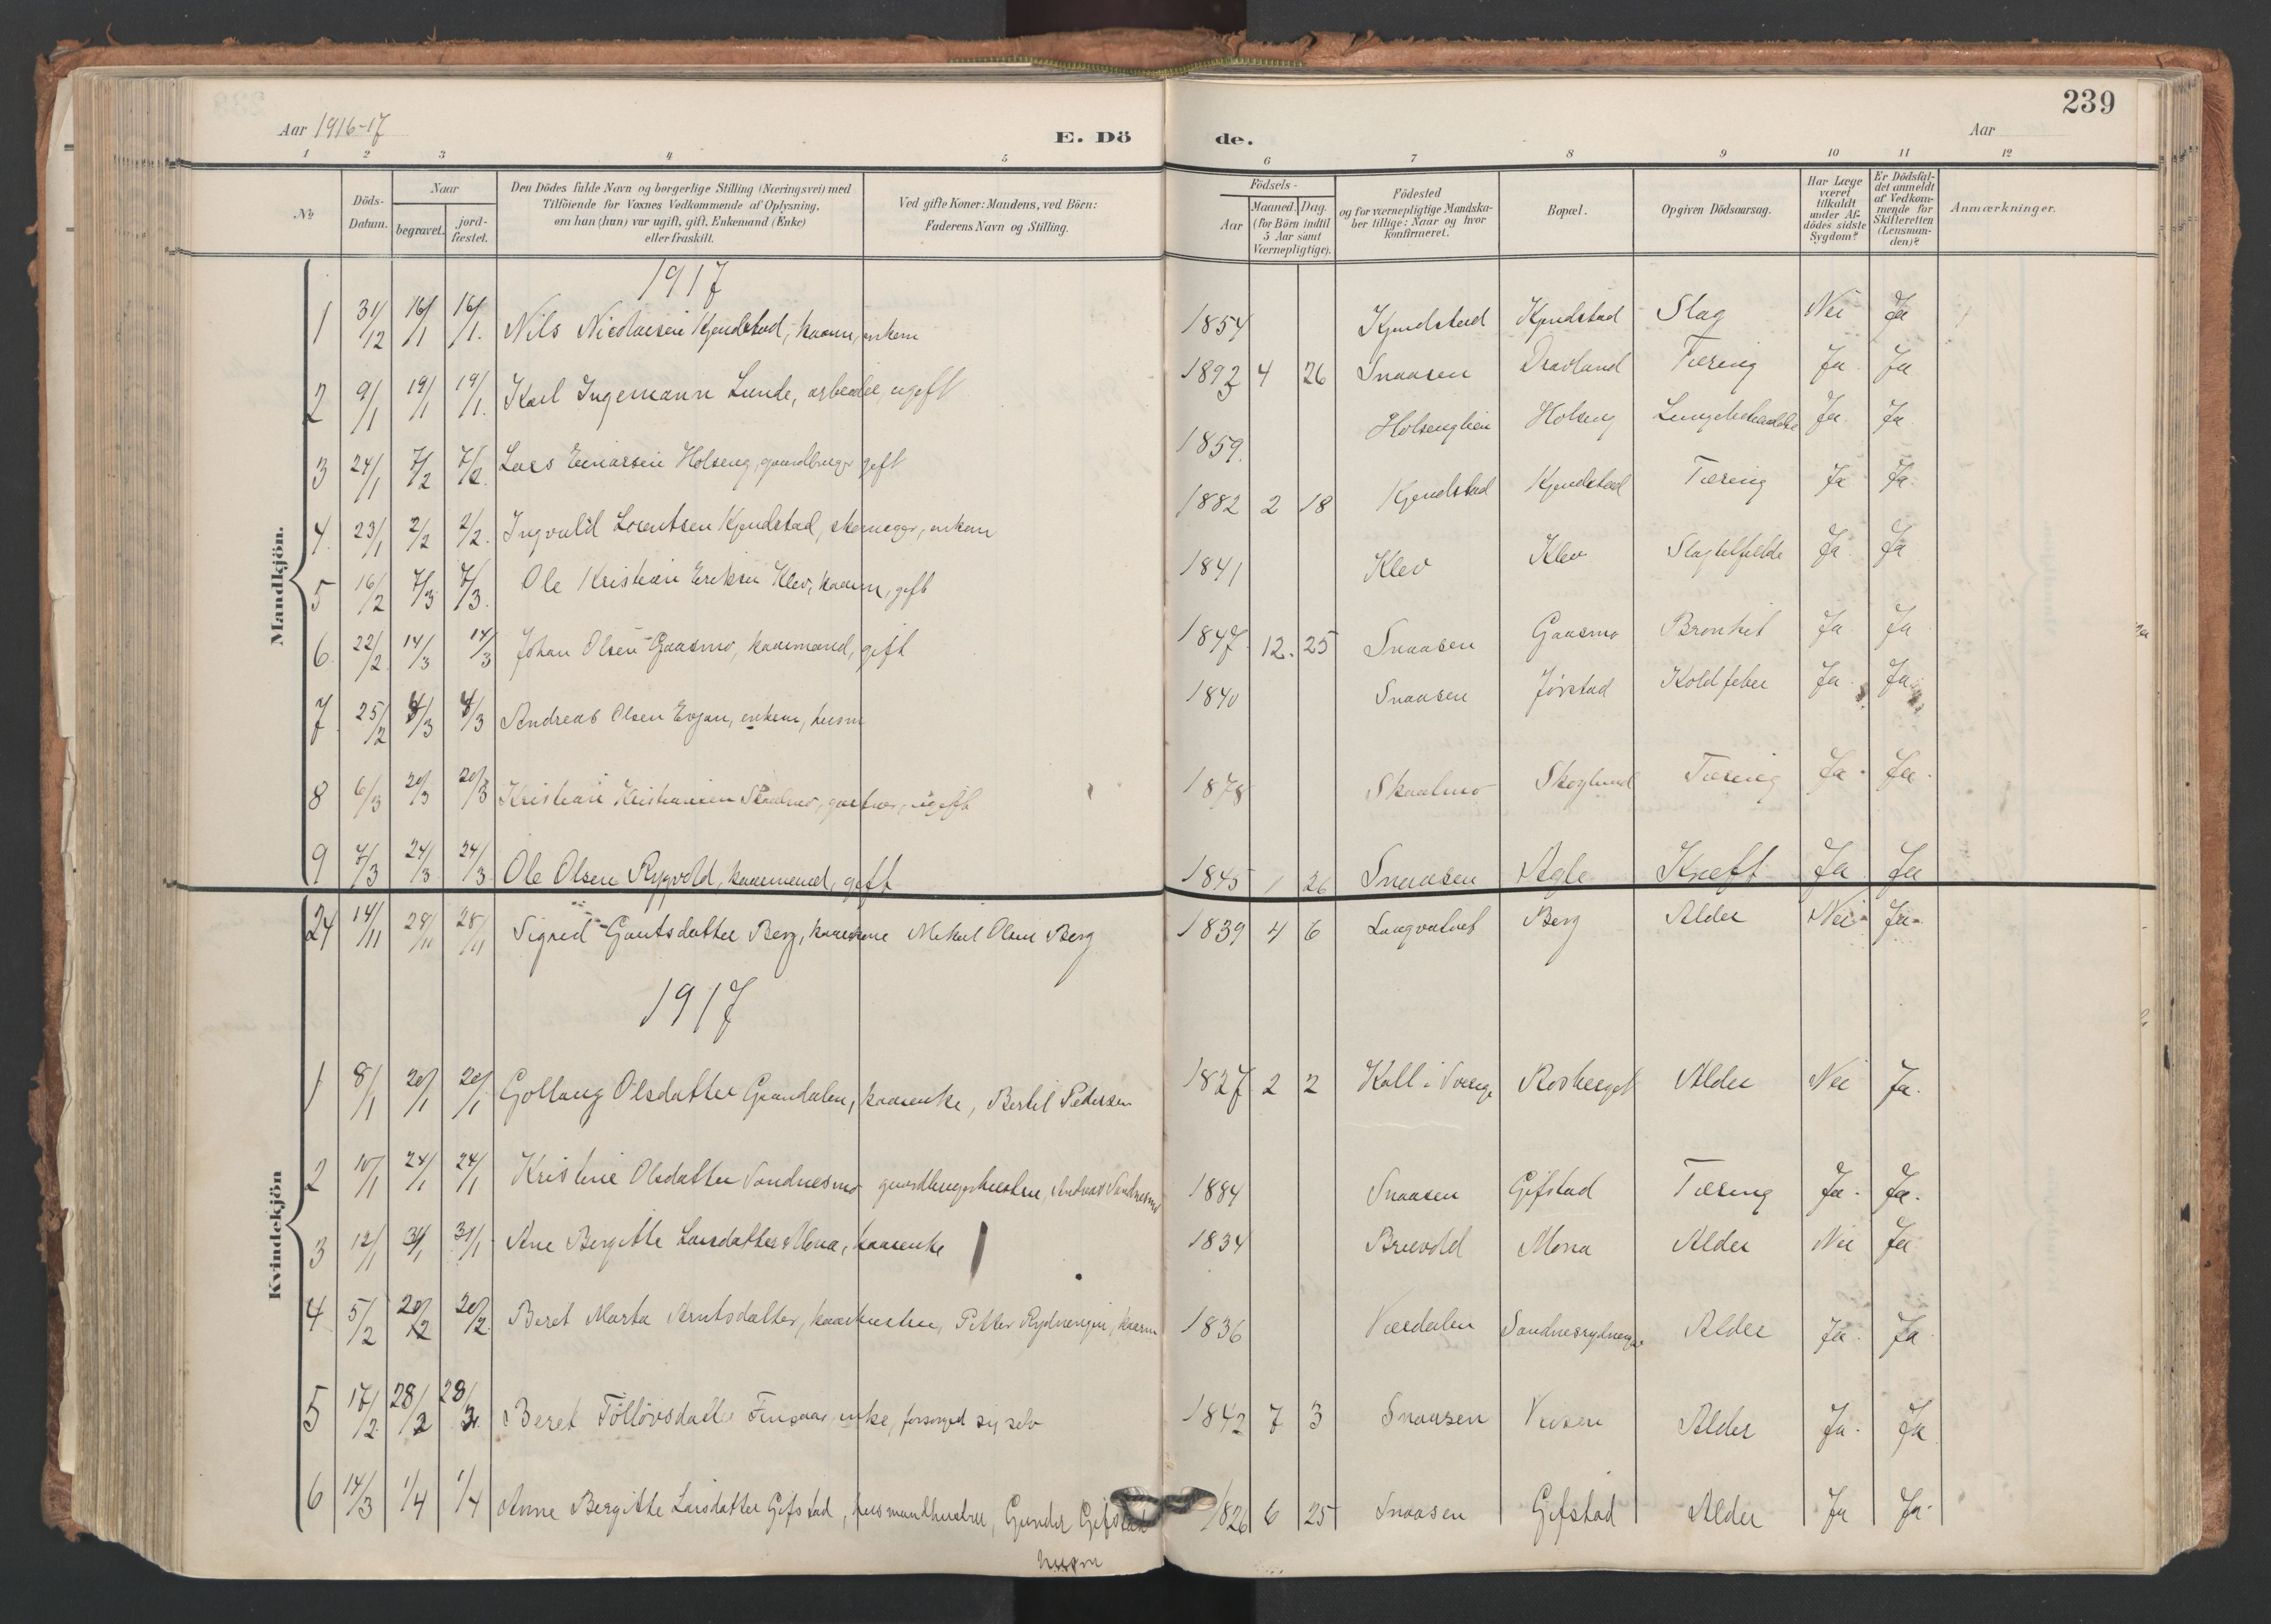 239
Aar 1916-17
E. Dö
de.
Aar
1 2 3 4 5 6 7 8 9 10 11 12
No
Döds-Datum.
Naar
begravet.
jord-fæstet.
Den Dödes fulde Navn og borgerlige Stilling (Næringsvei) med
Tilföiende for Voxnes Vedkommende af Oplysning,
om han (hun) var ugift, gift, Enkemand (Enke)
eller fraskilt.
Ved gifte Koner: Mandens, ved Börn:
Faderens Navn og Stilling.
Födsels-
Aar
Maaned. Dag.
(for Börn indtil
5 Aar samt
Værnepligtige).
Födested
og for værnepligtige Mandska-
ber tillige: Naar og hvor
konfirmeret.
Bopæl.
Opgiven Dödsaarsag.
Har Læge
været
tilkaldt
under Af-
dödes sidste
Sygdom?
Er Dödsfal-
det anmeldt
af Vedkom-
mende for
Skifteretten
(Lensman-
den)?
Anmærkninger.
Mandkjön.
1917
1 31/12 16/1 16/1. Nils Nicolaisen Kjendstad, kaarm, enkem 1854 Kjendstad Kjendstad Slag Nei Ja
2 9/1 19/1 19/1. Karl Ingemann Lunde, arbeider, ugift 1892 4 26 Snaasen Dravland Tæring Ja Ja
3 24/1 7/2 7/2. Lars Einarsen Holseng, gaardbruger gift 1859. Holsenglien Holseng Ja. Ja
4. 23/1 2/2 2/2. Ingvald Lorentsen Kjendstad, enkem 1882 2 18 Kjendstad Kjendstad Tæring Ja Ja.
5 16/2 7/3 7/3. Ole Kristian Eriksen Klev, kaarm, gift 1841 Klev Klev Slagtilfælde Ja Ja
6. 22/2 14/3 14/3 Johan Olsen Gaasmo, kaarmand, gift 1847 12. 25 Snaasen Gaasmo Bronkit Ja Ja
7 25/2 8/3 8/3 Andreas Olsen Evjan, enkem, husm 1840 Snaasen Jørstad Koldfeber Ja Ja
8 6/3 20/3 20/3 Kristian Kristiansen Skaalmo, ugift 1878 Skaalmo Skoglund Tæring Ja. Ja.
9 7/3 24/3 24/3 Ole Olsen Rygvold, kaarmand, gift 1845 1 26 Snaasen Agle Kræft Ja Ja
Kvindekjön
24 14/11 28/11 28/11 Sigrid Gautsdatter Berg, kaarkone Mikal Olsen Berg 1839 4 6 Langvatnet Berg Alder Nei. Ja.
1917
1 8/1 20/1 20/1 Gollaug Olsdatter Grandalen, kaarenke, Bertil Pedersen 1827 2 2 Kall i Sverige Rosberget Alder Nei Ja.
2 10/1 24/1 24/1 Kristine Olsdatter Sandnesmo gaardbrugerhustru, Andreas Sandnesmo 1884 Snaasen Gifstad Tæring Ja. Ja.
3 12/1 31/1 31/1 Ane Bergitte Larsdatter Mona, kaarenke 1834 Breivold Mona Alder Nei Ja
4 5/2 20/2 20/2. Beret Marta Arntsdatter, kaarhustru, Petter Rydningen, kaarm 1836 Værdalen Alder Ja. Ja
5 17/2. 28/2 28/2. Beret Tölløvsdatter Finsaas, enke, forsørget sig selv 1842 7 3 Snaasen Viosen Alder Ja. Ja
6 14/3 1/4 1/4 Anne Bergitte Larsdatter Gifstad, husmandhustru, Gunder Gifstad 1826 6 25 Snaasen Gifstad Alder Ja Ja.
husm